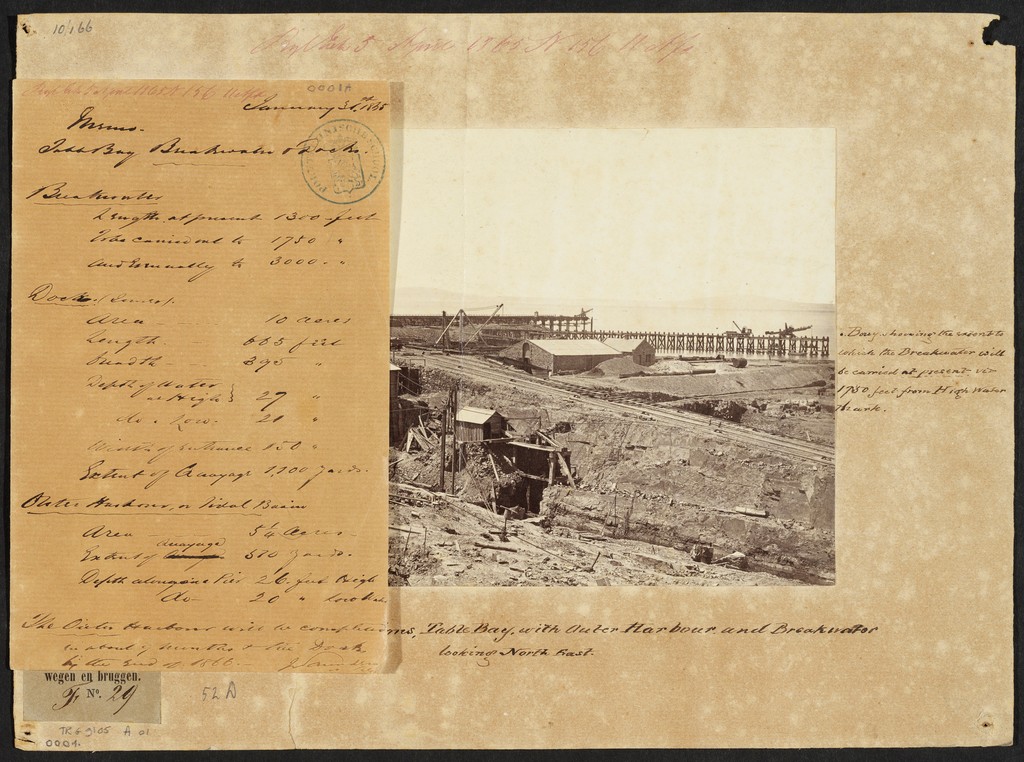 10/166
5 April 1865 N 156
0001A
January 31st 1865
Memo.
Table Bay Breakwater & Docks.
Breakwater
Length, at present 1300 feet
To be carried out to 1750 "
And Eventually to 3000 - "
Dock (Inner).
Area - 10 acres
Length 665 feet
Breadth - 395 "
Depth of Water
at High } 27 "
do. Low. 21 "
Width of Entrance 150 "
Extent of Quayage 1,100 yards.
Outer Harbour, or Tidal Basin
Area 5¼ acres -
Extent of Quayage 610 yards.
Depth alongside Pier 26 feet High
do - 20 " Low
The Outer Harbour will be complete
in about 9 months & the Dock
by the end of 1866. -
, Table Bay, with Outer Harbour and Breakwater
looking North East.
Bay, shewing the extent to
which the Breakwater will
be carried at present viz
1750 feet from High Water
Mark.
wegen en bruggen.
F No. 29
52 A
TRG 9105 A 01
0001.